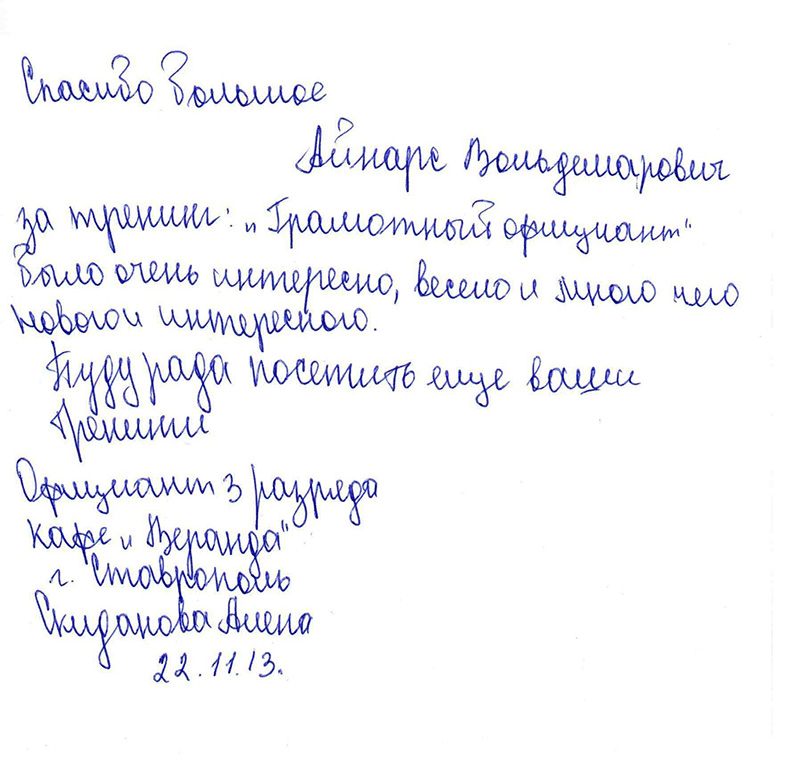 Спасибо большое
Айнарс Вольдемарович
за тренинг: „Грамотный официант"
Было очень интересно, весело и много чего
нового и интересного.
Буду рада посетить еще ваши
тренинги
Официант 3 разряда
кафе „Веранда"
г. Ставрополь
Скиданова Алена
22.11.13.